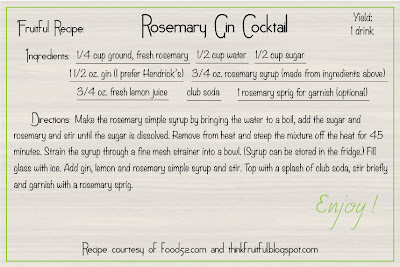 Fruitful Recipe: Rosemary Gin Cocktail Yield:
1 drink
Ingredients: 1/4 cup ground, fresh rosemary 1/2 cup water 1/2 cup sugar
1 1/2 oz. gin (I prefer Hendrick's) 3/4 oz. rosemary syrup (made from ingredients above)
3/4 oz. fresh lemon juice club soda 1 rosemary sprig for garnish (optional)
Directions: Make the rosemary simple syrup by bringing the water to a boil, add the sugar and
rosemary and stir until the sugar is dissolved. Remove from heat and steep the mixture off the heat for 45
minutes. Strain the syrup through a fine mesh strainer into a bowl. (Syrup can be stored in the fridge.) Fill
glass with ice. Add gin, lemon and rosemary simple syrup and stir. Top with a splash of club soda, stir briefly
and garnish with a rosemary sprig.
Enjoy!
Recipe courtesy of Food52.com and thinkfruitful.blogspot.com